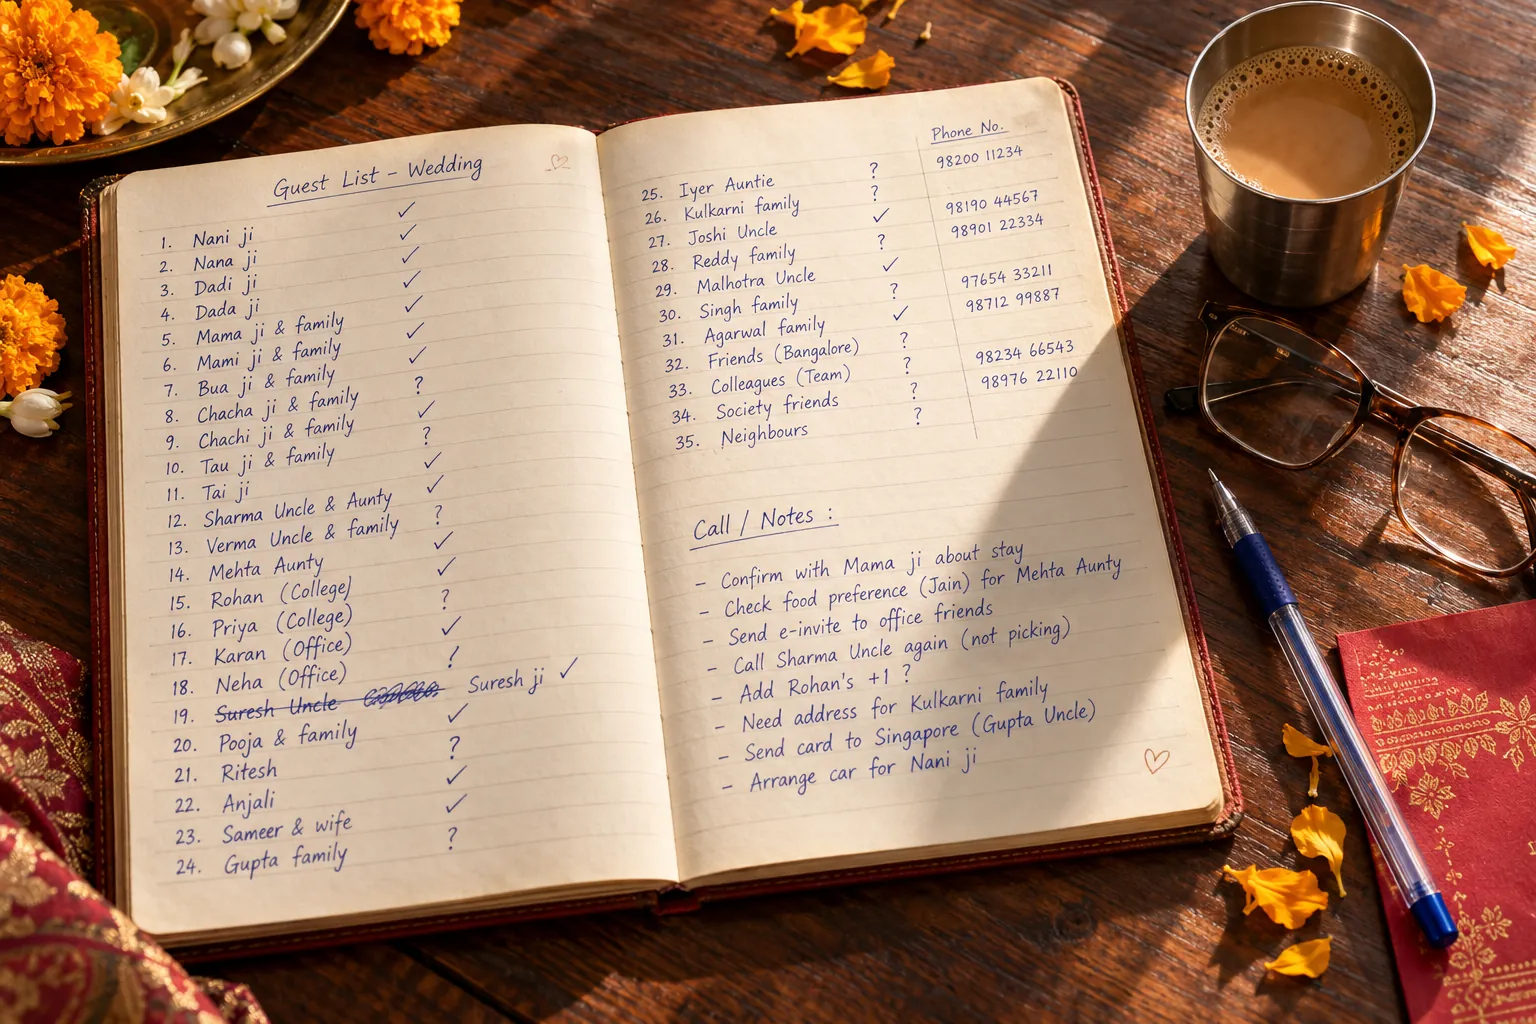 Guest List - Wedding
1. Nani ji ✓
2. Nana ji ✓
3. Dadi ji ✓
4. Dada ji ✓
5. Mama ji & family ✓
6. Mami ji & family ✓
7. Bua ji & family ✓
8. Chacha ji & family ?
9. Chachi ji & family ✓
10. Tau ji & family ?
11. Tai ji ✓
12. Sharma Uncle & Aunty ✓
13. Verma Uncle & family ?
14. Mehta Aunty ✓
15. Rohan (College) ✓
16. Priya (College) ?
17. Karan (Office) ✓
18. Neha (Office)
19. Suresh Uncle Suresh ji ✓
20. Pooja & family ✓
21. Ritesh ?
22. Anjali ✓
23. Sameer & wife ✓
24. Gupta family ?
Phone No.
25. Iyer Auntie ? 98200 11234
26. Kulkarni family ?
27. Joshi Uncle ✓ 98190 44567
28. Reddy family ? 98901 22334
29. Malhotra Uncle ✓
30. Singh family ? 97654 33211
31. Agarwal family ✓ 98712 99887
32. Friends (Bangalore) ?
33. Colleagues (Team) ? 98234 66543
34. Society friends ? 98976 22110
35. Neighbours ?
Call / Notes :
- Confirm with Mama ji about stay
- Check food preference (Jain) for Mehta Aunty
- Send e-invite to office friends
- Call Sharma Uncle again (not picking)
- Add Rohan's +1 ?
- Need address for Kulkarni family
- Send card to Singapore (Gupta Uncle)
- Arrange car for Nani ji